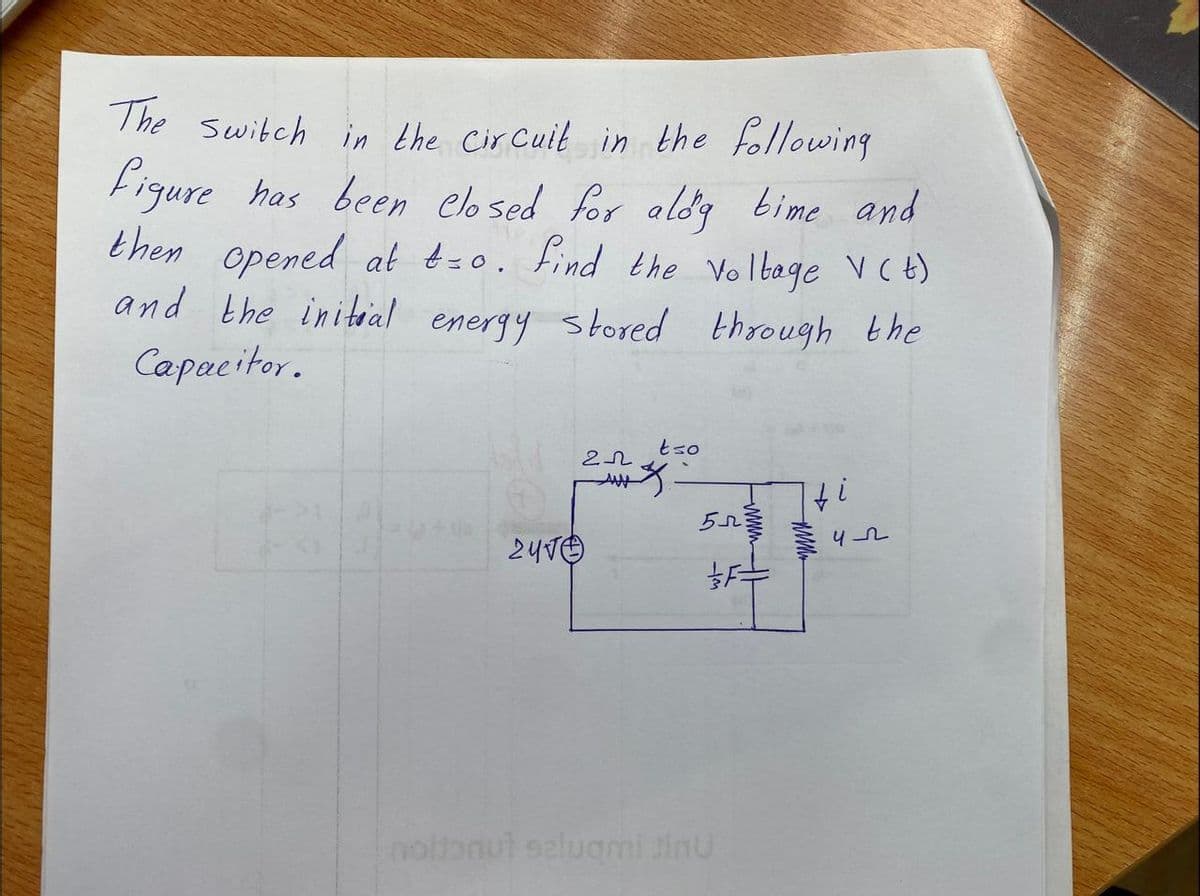 The switch in the circuit in the following
figure has been closed for along time and
then opened at t=0. find the Voltage V(t)
and the initial energy stored through the
Capacitor.
2Ω t=0
↓i
5Ω
4Ω
24V
1/3 F
Unit impulse function